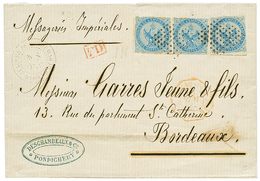 Messageries Impériales
P.D.
Messieurs Garres Jeune & fils,
13. Rue du parlement Ste Catherine,
Bordeaux
DESCHANDELIEZ & Co
PONDICHERY